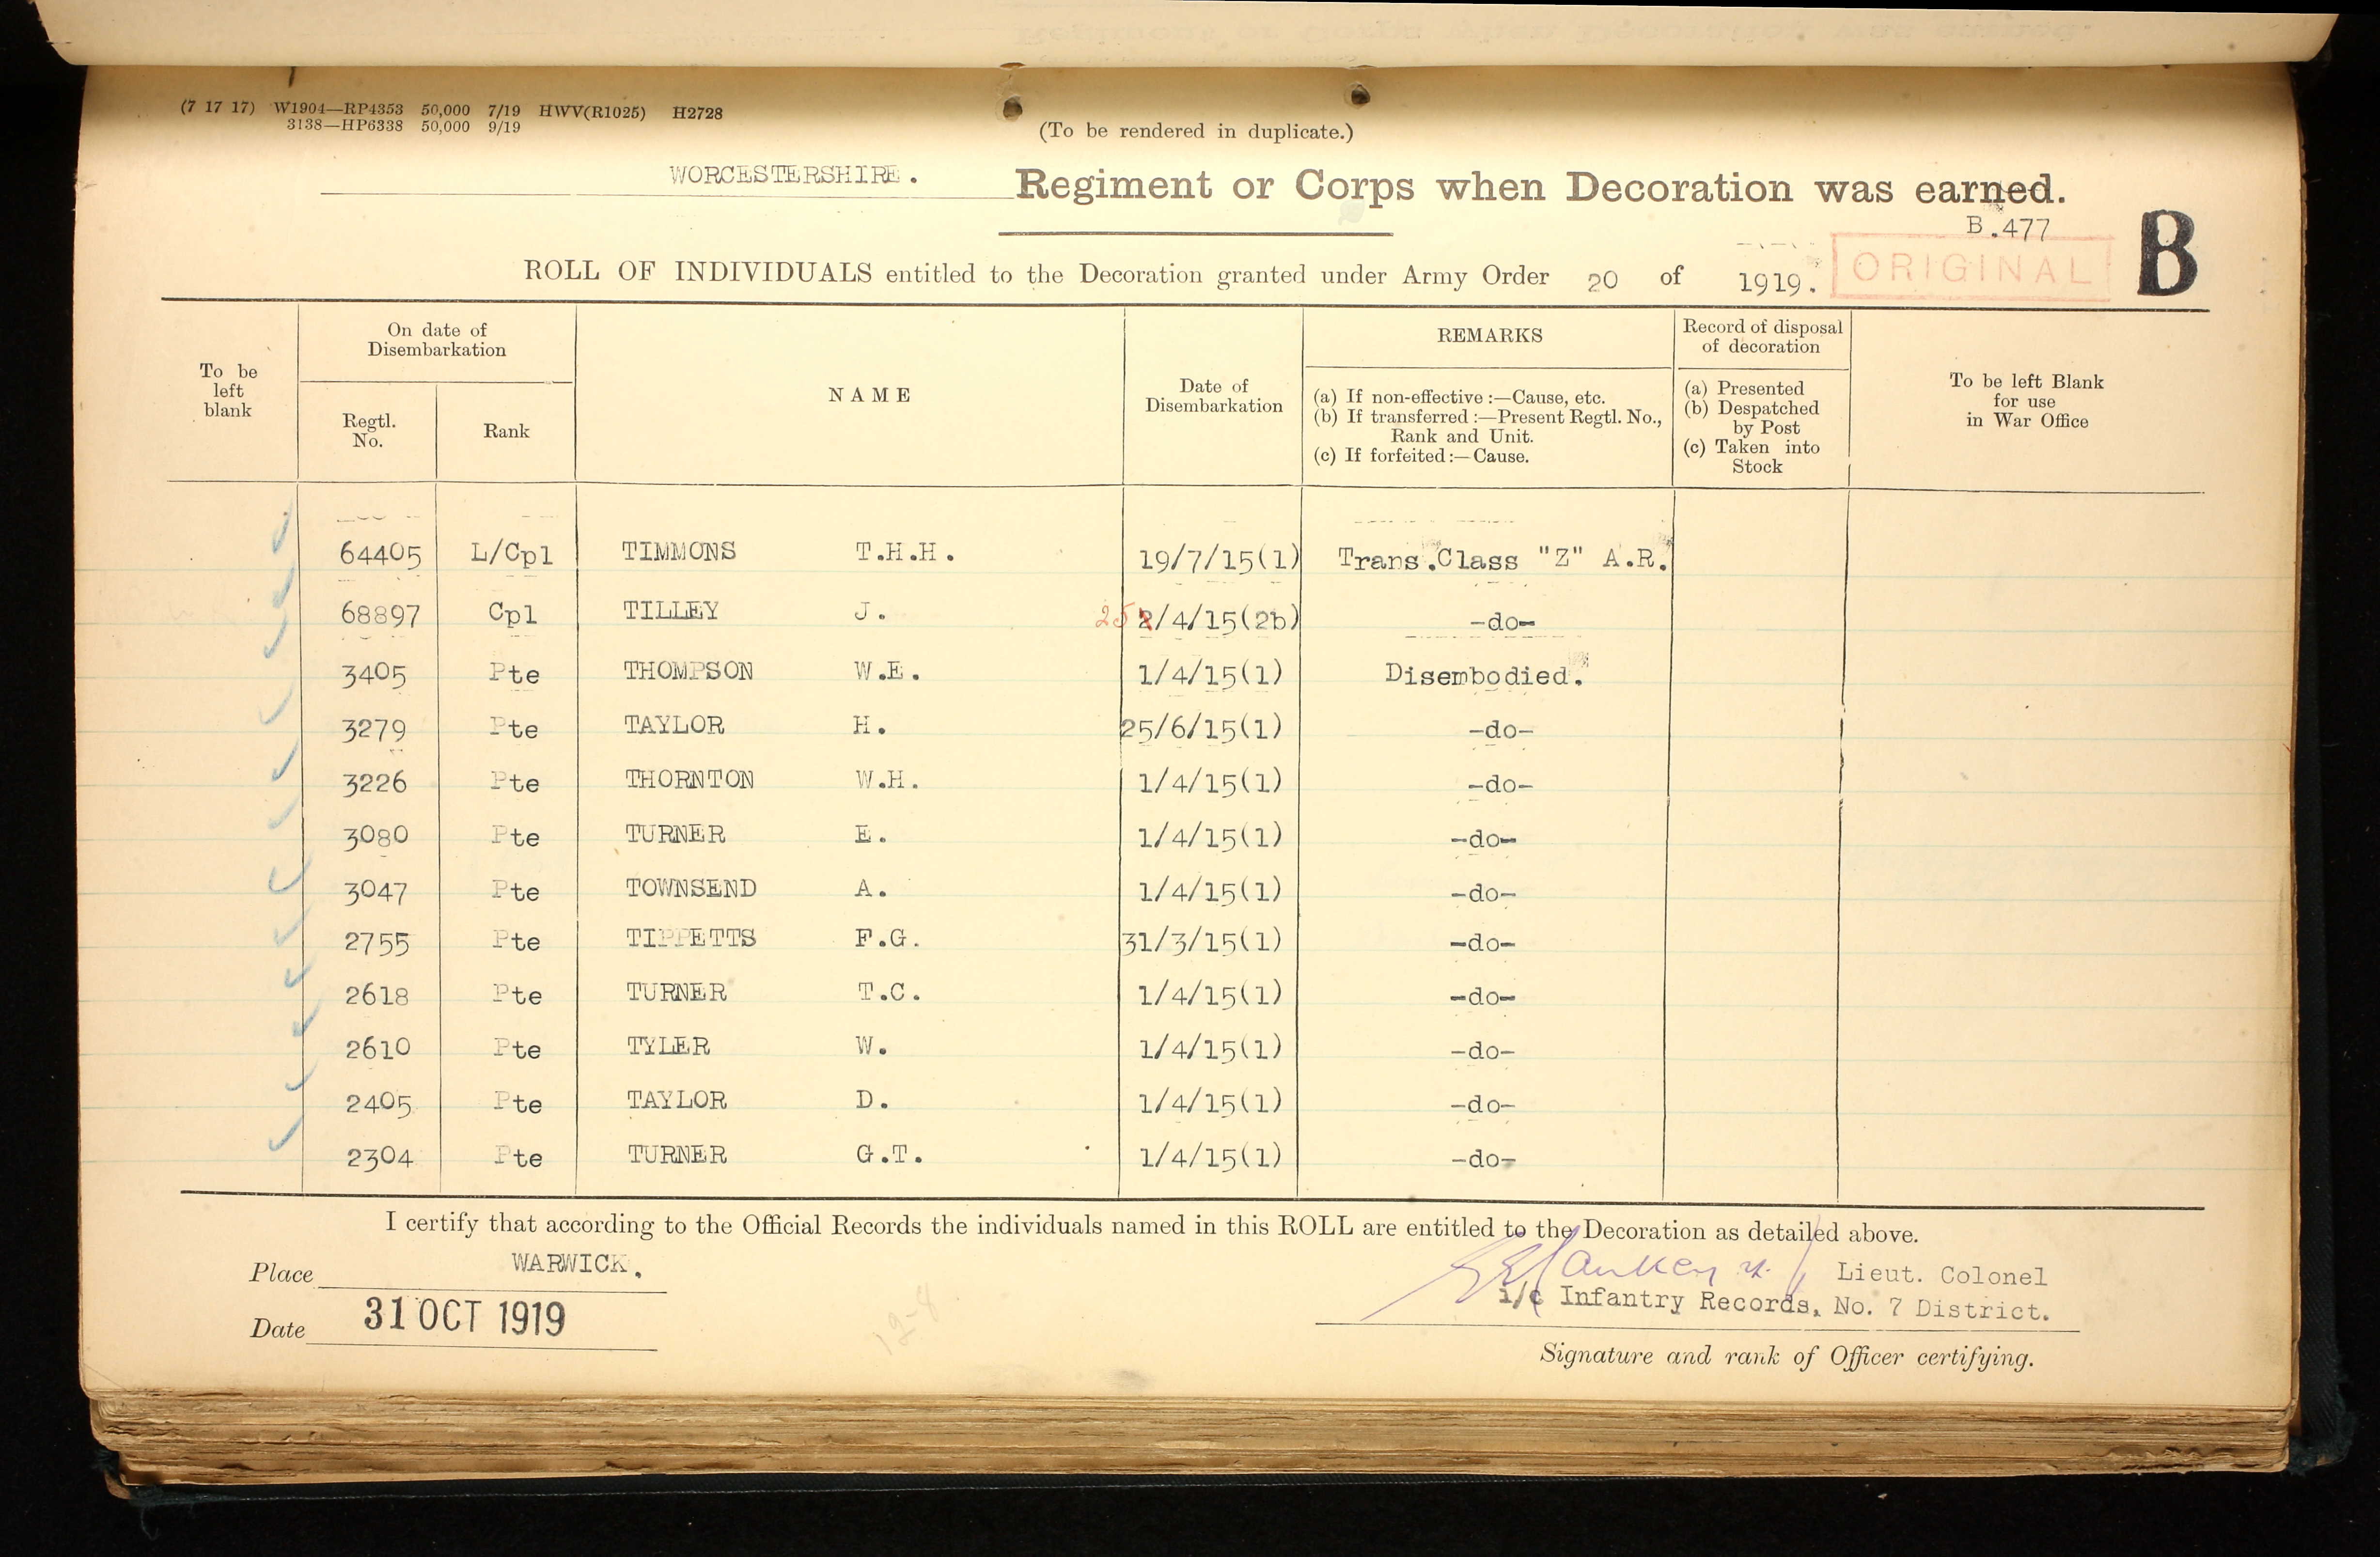 (7 17 17) W1904—RP4353 50,000 7/19 HWV(R1025) H2728
3138—HP6338 50,000 9/19
(To be rendered in duplicate.)
WORCESTERSHIRE. Regiment or Corps when Decoration was earned.
B.477
B
ROLL OF INDIVIDUALS entitled to the Decoration granted under Army Order 20 of 1919. ORIGINAL
To be left blank
On date of Disembarkation
Regtl. No.
Rank
NAME
Date of Disembarkation
REMARKS
(a) If non-effective :—Cause, etc.
(b) If transferred :—Present Regtl. No.,
Rank and Unit.
(c) If forfeited :—Cause.
Record of disposal of decoration
(a) Presented
(b) Despatched
by Post
(c) Taken into
Stock
To be left Blank
for use
in War Office
64405 L/Cpl TIMMONS T.H.H. 19/7/15(1) Trans.Class "Z" A.R.
68897 Cpl TILLEY J. 25 2/4/15(2b) -do-
3405 Pte THOMPSON W.E. 1/4/15(1) Disembodied.
3279 Pte TAYLOR H. 25/6/15(1) -do-
3226 Pte THORNTON W.H. 1/4/15(1) -do-
3080 Pte TURNER E. 1/4/15(1) -do-
3047 Pte TOWNSEND A. 1/4/15(1) -do-
2755 Pte TIPPETTS F.G. 31/3/15(1) -do-
2618 Pte TURNER T.C. 1/4/15(1) -do-
2610 Pte TYLER W. 1/4/15(1) -do-
2405 Pte TAYLOR D. 1/4/15(1) -do-
2304 Pte TURNER G.T. 1/4/15(1) -do-
I certify that according to the Official Records the individuals named in this ROLL are entitled to the Decoration as detailed above.
Place WARWICK.
Lieut. Colonel
i/c Infantry Records, No. 7 District.
Date 31 OCT 1919
Signature and rank of Officer certifying.